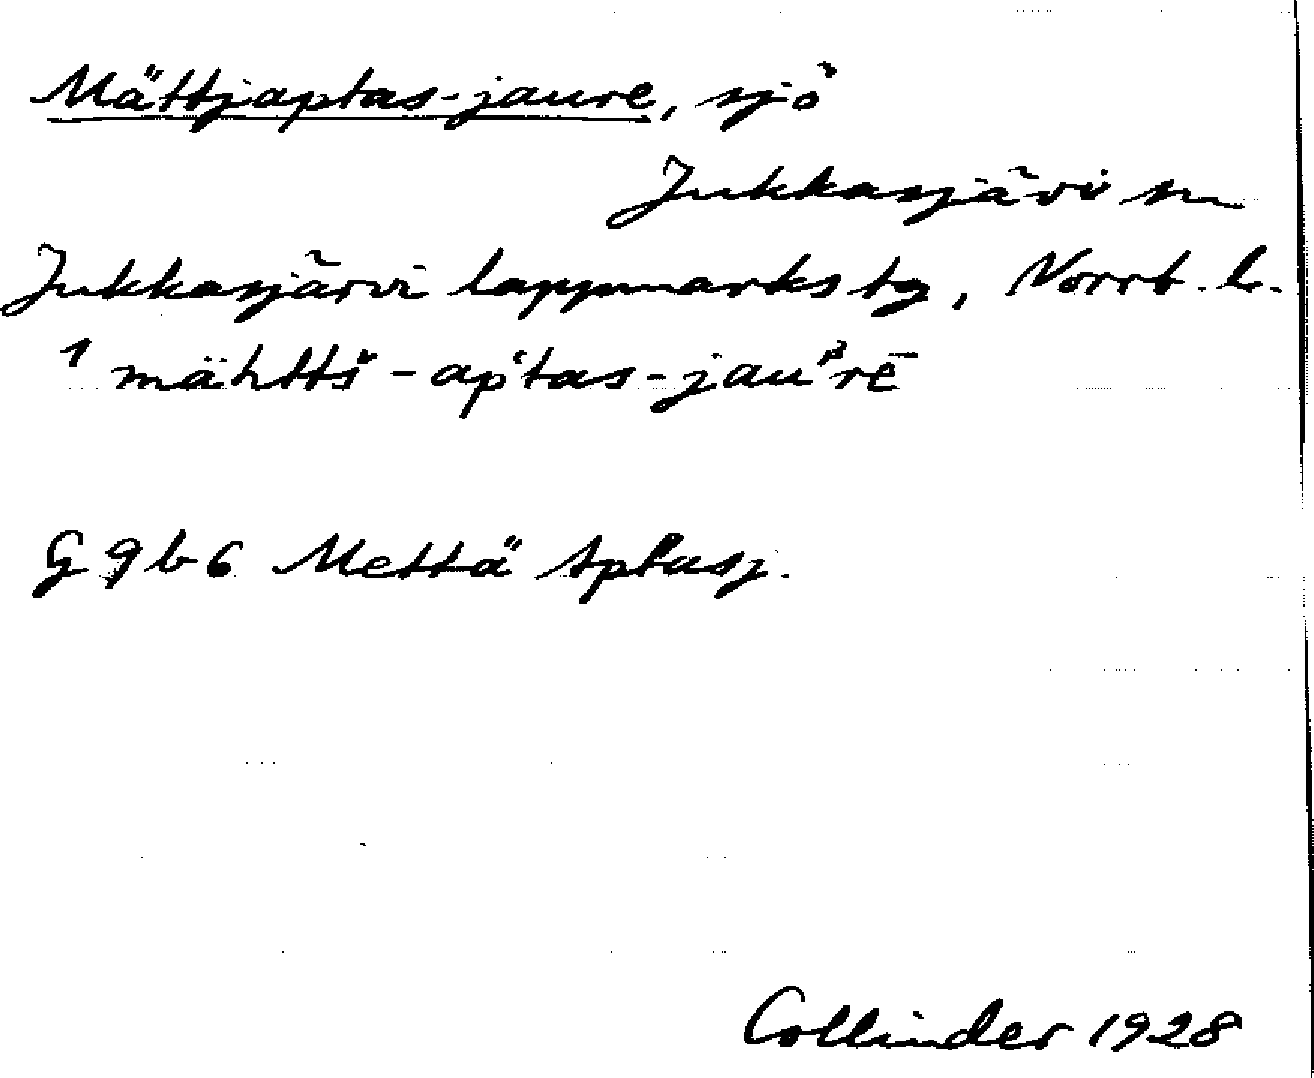 Mättjaptas-jaure, sjö
Jukkasjärvi sn
Jukkasjärvi lappmarks tg, Norrb. l.
1 mähttš-ap'tas-jauʳrē
G 9 b 6 Mettä Aptasj.
Collinder 1928